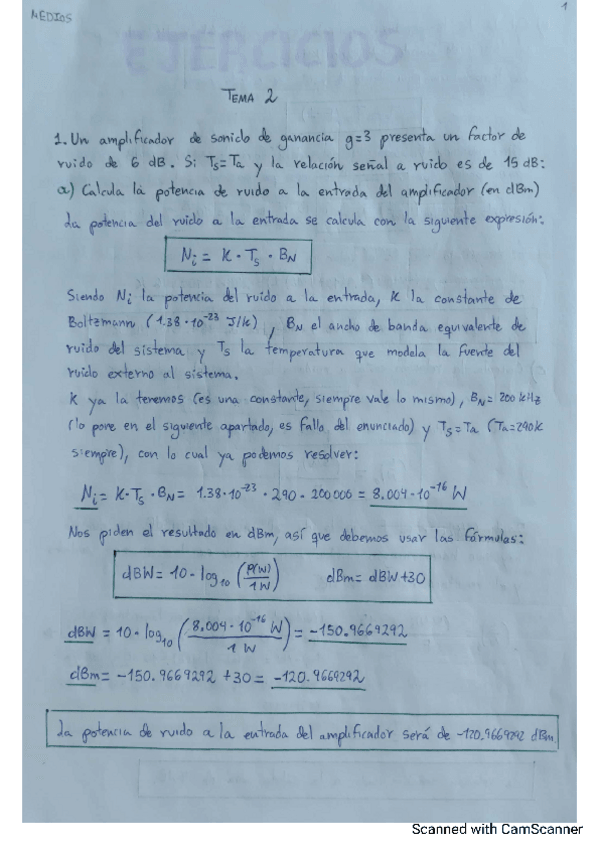 MEDIOS
1
EJERCICIOS
TEMA 2
1. Un amplificador de sonido de ganancia g=3 presenta un factor de
ruido de 6 dB. Si Ts=Ta y la relación señal a ruido es de 15 dB:
a) Calcula la potencia de ruido a la entrada del amplificador (en dBm)
La potencia del ruido a la entrada se calcula con la siguiente expresión:
Ni = K · Ts · BN
Siendo Ni la potencia del ruido a la entrada, K la constante de
Boltzmann (1.38·10⁻²³ J/K), BN el ancho de banda equivalente de
ruido del sistema y Ts la temperatura que modela la fuente del
ruido externo al sistema.
K ya la tenemos (es una constante, siempre vale lo mismo), BN = 200 kHz
(lo pone en el siguiente apartado, es fallo del enunciado) y Ts=Ta (Ta=290K
siempre), con lo cual ya podemos resolver:
Ni = K·Ts·BN = 1.38·10⁻²³ · 290 · 200000 = 8.004·10⁻¹⁶ W
Nos piden el resultado en dBm, así que debemos usar las fórmulas:
dBW = 10 · log₁₀ (P(W)/1W) dBm = dBW+30
dBW = 10 · log₁₀ (8.004·10⁻¹⁶ W/1 W) = -150.9669292
dBm = -150.9669292 +30 = -120.9669292
La potencia de ruido a la entrada del amplificador será de -120.9669292 dBm.
Scanned with CamScanner